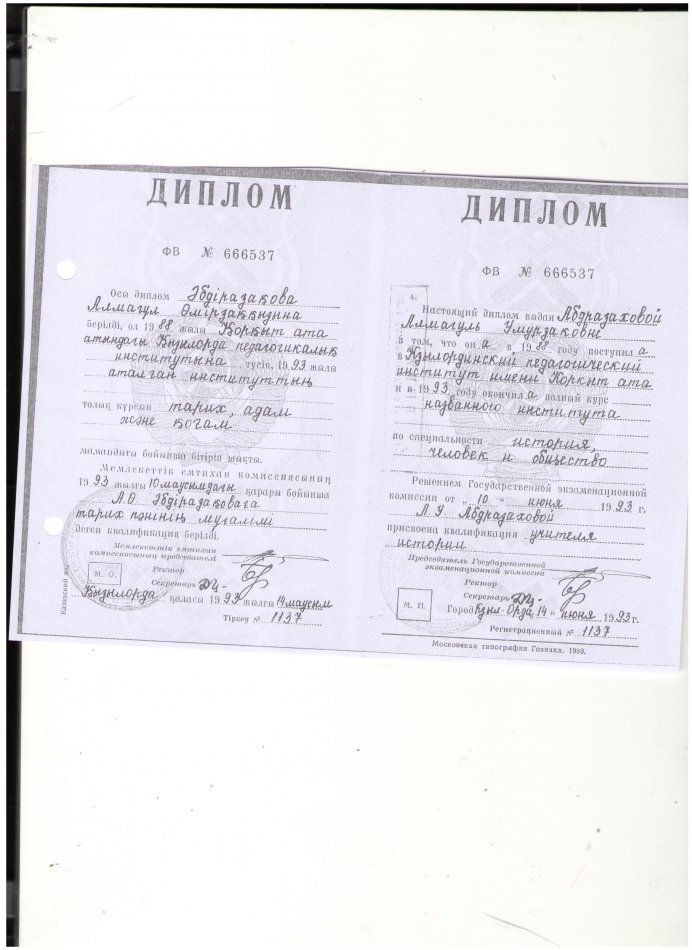 ДИПЛОМ
ФВ № 666537
Осы диплом Әбдіразақова
Алмагул Өмірзаққызына
берілді, ол 1988 жылы Қорқыт ата
атындағы Қызылорда педагогикалық
институтына түсіп, 1993 жылы
аталған институттың
толық курсын тарих, адам
және қоғам
мамандығы бойынша бітіріп шықты.
Мемлекеттік емтихан комиссиясының
1993 жылғы 10 маусымдағы қарары бойынша
А.Ө. Әбдіразақоваға
тарих пәнінің мұғалімі
деген квалификация берілді.
Мемлекеттік емтихан
комиссиясының председателі
Ректор
Секретарь
М. О.
Қызылорда қаласы 1993 жылғы 14 маусым
Тіркеу № 1137
ДИПЛОМ
ФВ № 666537
Настоящий диплом выдан Абдразаховой
Алмагуль Умурзаковне
в том, что он а в 1988 году поступил а
в Кзылординский педагогический
институт имени Коркыт ата
и в 1993 году окончил а полный курс
названного института
по специальности история,
человек и общество
Решением Государственной экзаменационной
комиссии от „ 10 “ июня 1993 г.
А У. Абдразаховой
присвоена квалификация учителя
истории
Председатель Государственной
экзаменационной комиссии
Ректор
Секретарь
М. П.
Город Кзыл-Орда 14 „ июня 1993 г.
Регистрационный № 1137
Московская типография Гознака. 1989.